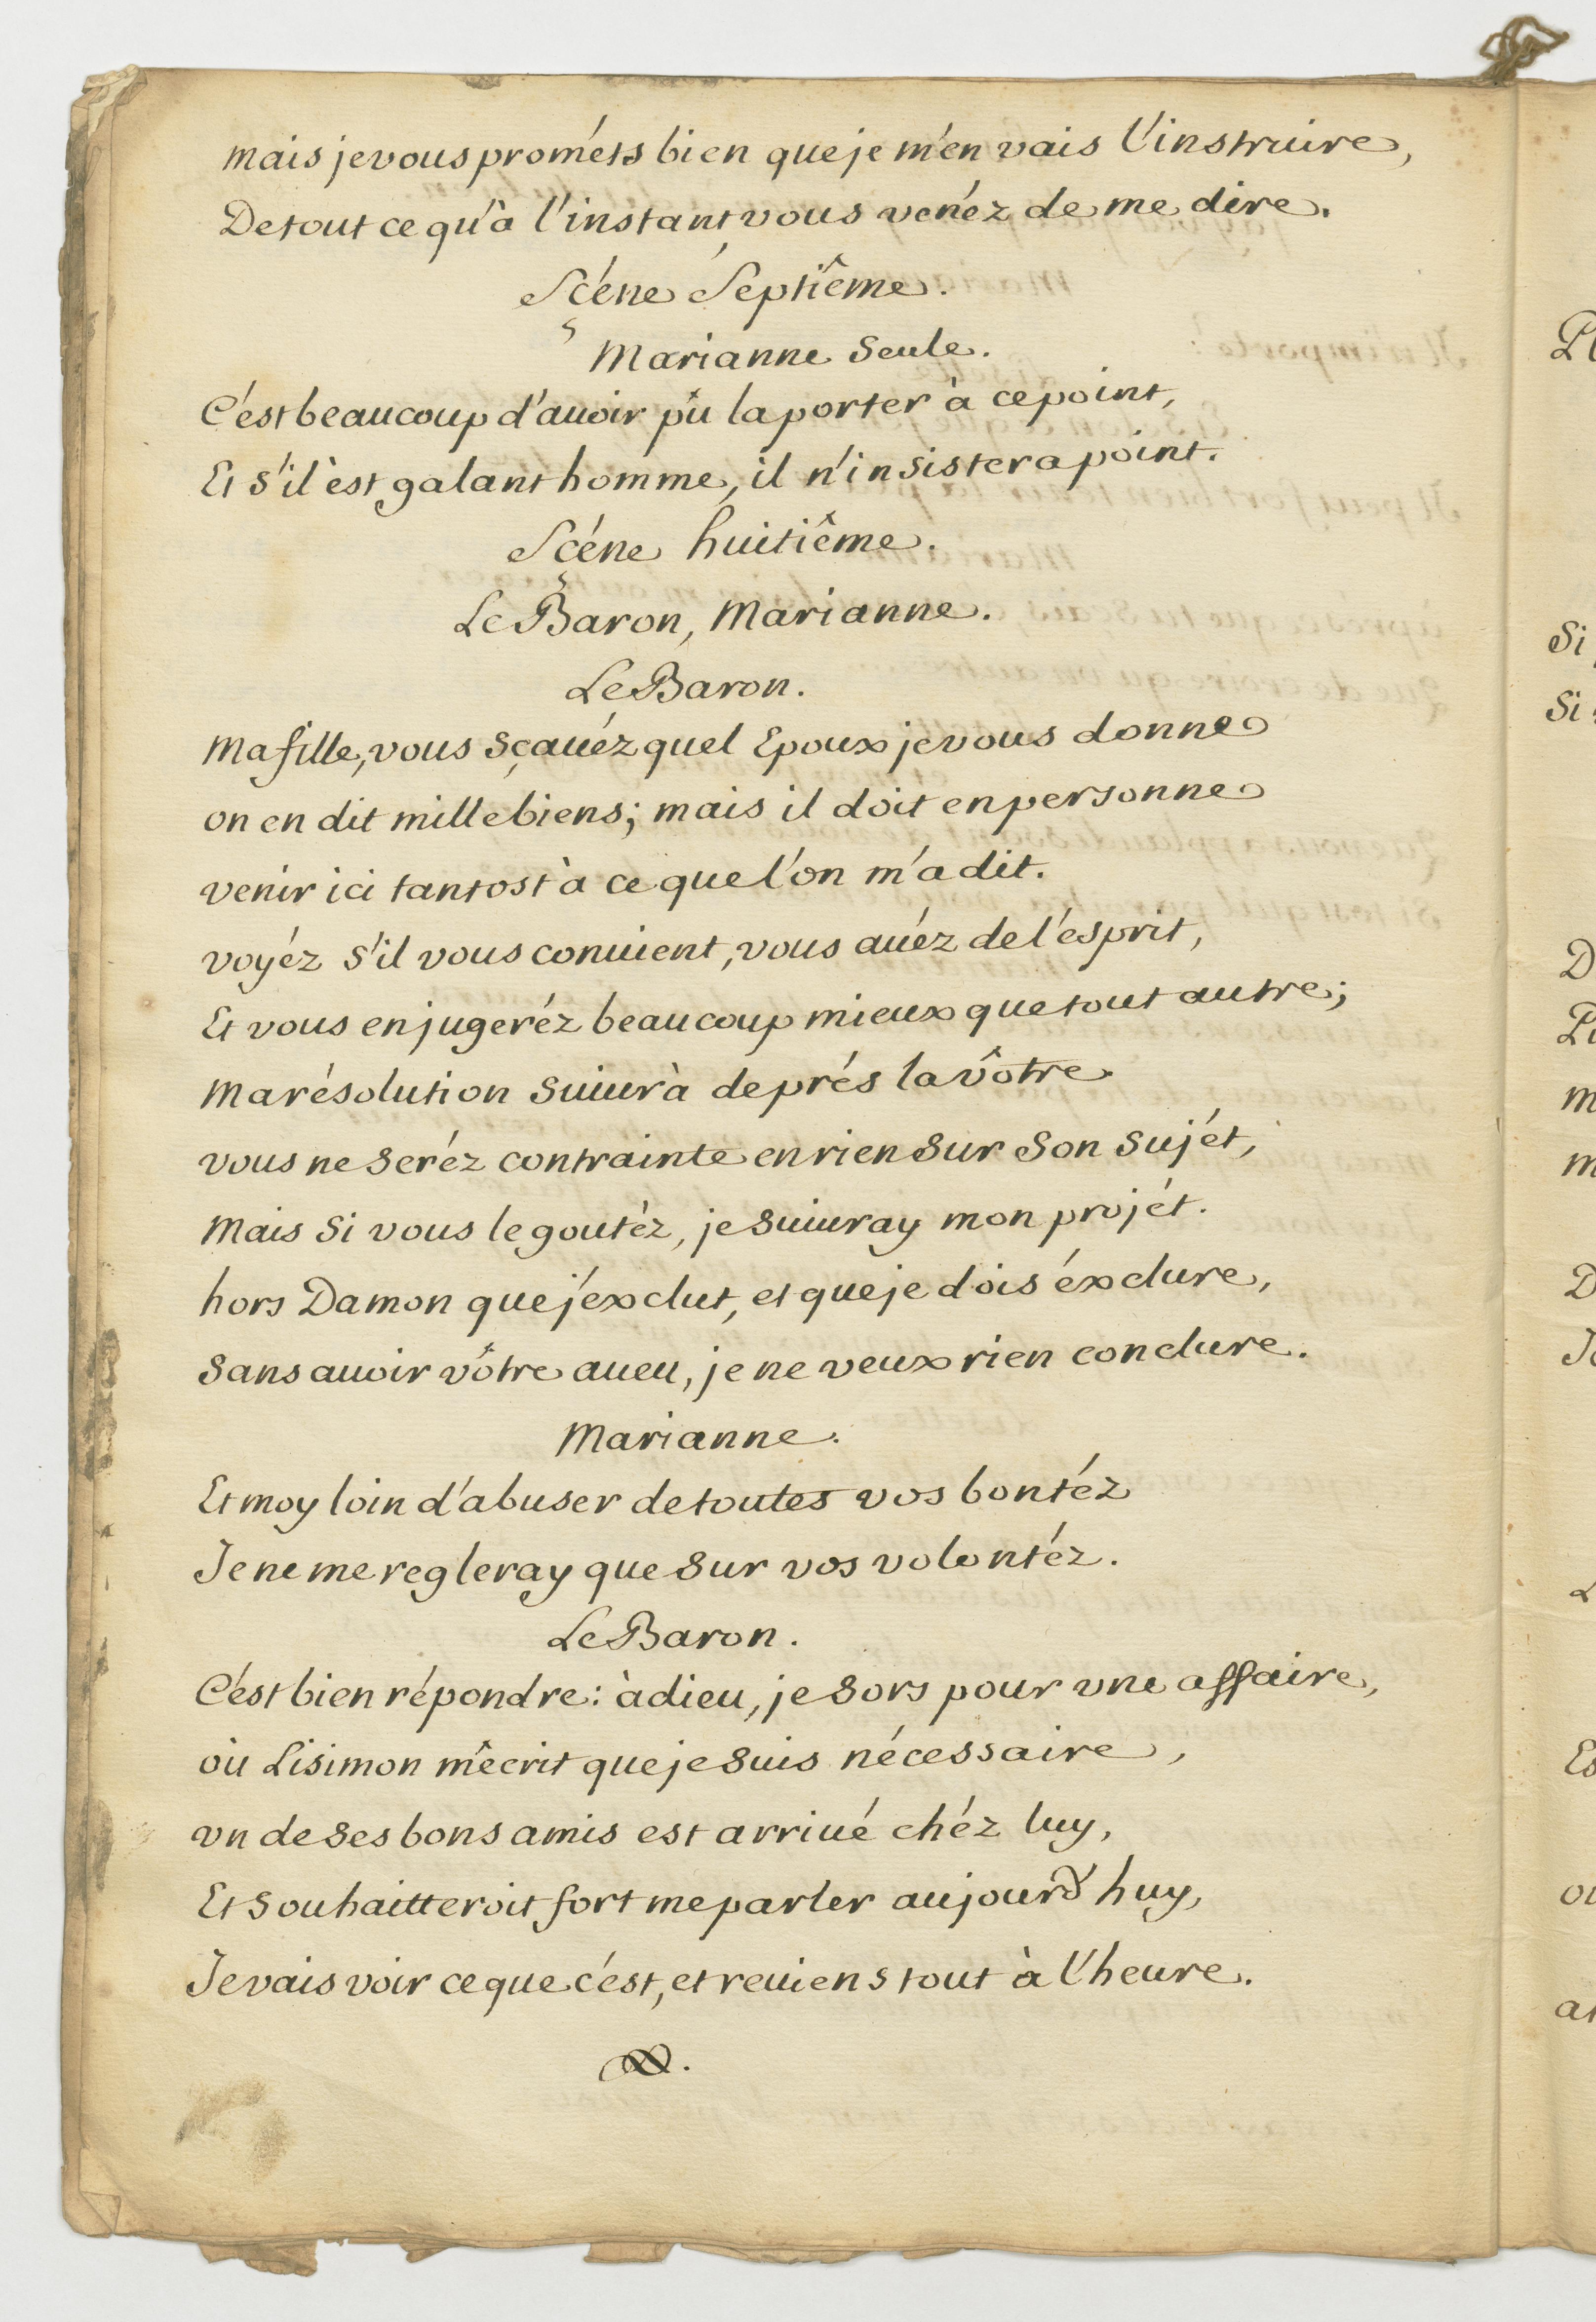 mais je vous prométs bien que je m'en vais l'instruire,
De tout ce qu'à l'instant vous venéz de me dire.
Scéne Septiême.
Marianne Seule.
C'ést beaucoup d'auoir pû la porter à ce point,
Et s'il èst galant homme, il n'insistera point.
Scéne huitiême.
Le Baron, Marianne.
Le Baron.
Ma fille, vous sçauéz quel Epoux je vous donne
on en dit mille biens; mais il doit en personne
venir ici tantost à ce que l'on m'a dit.
voyéz s'il vous conuient, vous auéz de l'ésprit,
Et vous en jugeréz beaucoup mieux que tout autre;
Ma résolution suiurà de prés la vôtre
vous ne seréz contrainte en rien sur son sujét,
Mais si vous le goutéz, je suiuray mon projét.
hors Damon que j'éxclut, et que je dois éxclure,
sans auoir vôtre aueu, je ne veux rien conclure.
Marianne.
Et moy loin d'abuser de toutes vos bontéz
Je ne me regleray que sur vos volontéz.
Le Baron.
C'ést bien répondre: àdieu, je sors pour vne affaire,
où Lisimon m'êcrit que je suis nécessaire,
vn de ses bons amis est arriué chéz luy,
Et souhaitteroit fort me parler aujourd'huy,
Je vais voir ce que c'ést, et reuiens tout à l'heure.